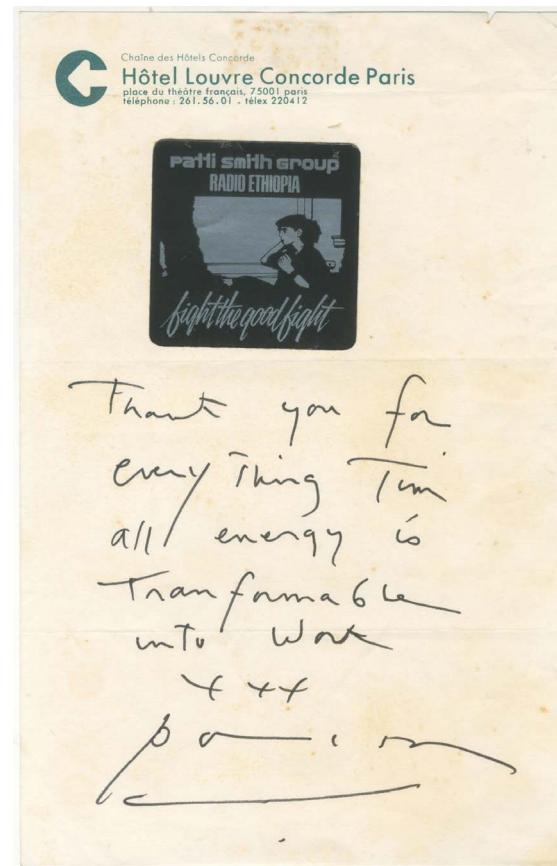 Chaîne des Hôtels Concorde
Hôtel Louvre Concorde Paris
place du théâtre français, 75001 paris
téléphone : 261.56.01 . télex 220412
patti smith group
RADIO ETHIOPIA
fight the good fight
Thank you for
every Thing Tim
all energy is
Tranformable
into Work
xxx